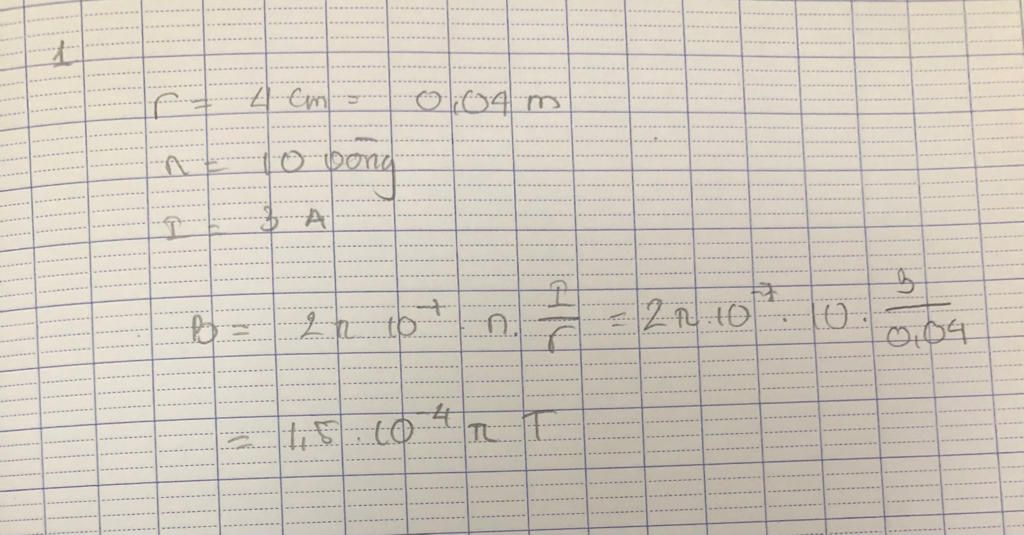 1
r = 4 cm = 0,04 m
n = 10 vòng
I = 3 A
B = 2π 10⁻⁷ . n. I/r = 2π.10⁻⁷ . 10 . 3/0,04
= 1,5 . 10⁻⁴ π T